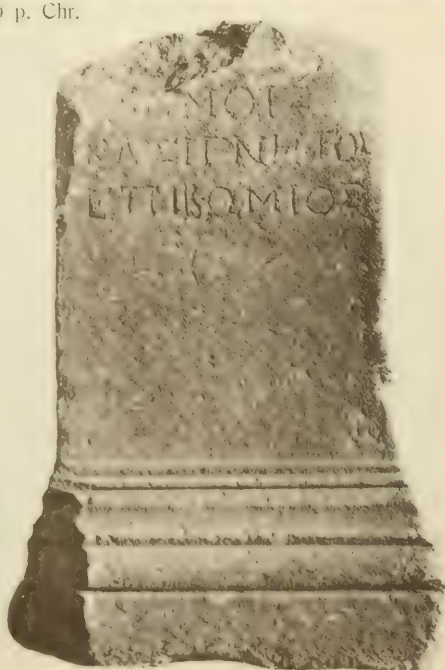 p. Chr.
ΚΑΣΙΓΝΗΤΟΙ
ΕΠΙΒΩΜΙΟΣ